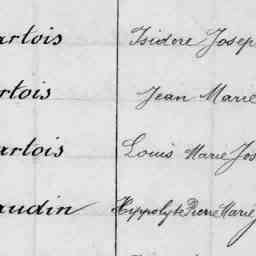 artois Isidore Josep
rtois Jean Marie
artois Louis Marie Jos
audin Hippolyte Pierre Marie J